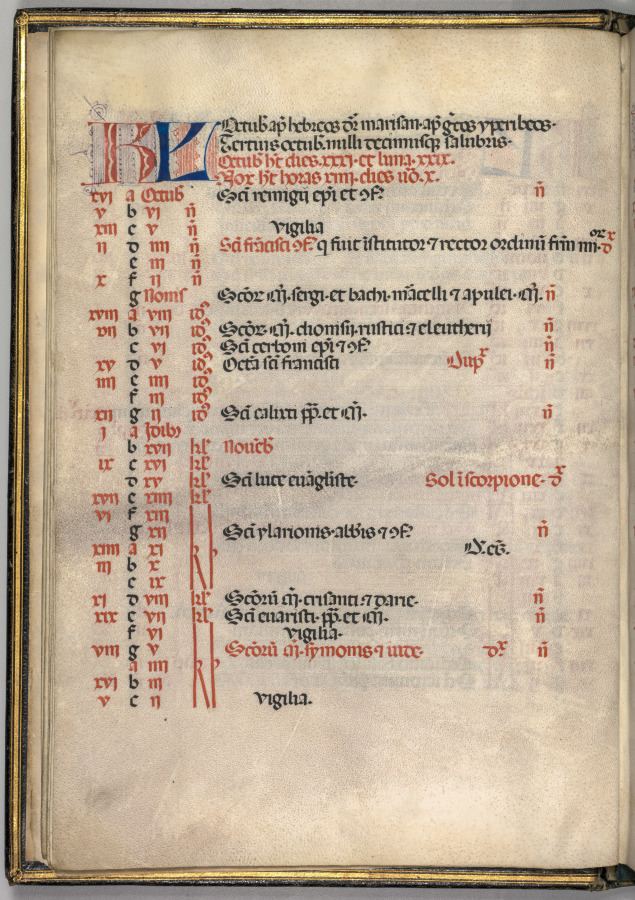 KL Octub ap hebreos dr marisan ap grecos yperibeos.
Tertius octub nulli decimusq salubris.
Octub ht dies .xxxi. et luna .xxix.
Nox ht horas xiiii. dies uo. x.
xvi a Octub Sci remigii epi et 9f. n
v b vi n
xiii c v n vigilia
ii d iiii n Sci francisci 9f. q fuit istitutor 7 rector ordinu frm
e iii n
x f ii n
g Nonis Scor m. sergi. et bachi. marcelli 7 apulei. m. n
xviii a viii id
vii b vii id Scor. m. dionisii. rustici 7 eleutherij n
c vi id Sci cerboni epi 7 9f. n
xv d v id Octa sci francisci Dup n
iiii e iiii id
f iii id
xii g ii id Sci calixti pp. et m. n
i a Idib
b xvii kl Noueb
ix c xvi kl
d xv kl Sci luce euangliste Sol i scorpione. d
xvii e xiiii kl
vi f xiii
g xii Sci ylarionis. abbis 7 9f. n
xiiii a xi D. eg.
iii b x
c ix
xi d viii kl Scoru m. crisanti 7 darie. n
xix e vii kl Sci euaristi. pp. et m. n
f vi vigilia.
viii g v Scoru m. symonis 7 iude d n
a iiii
xvi b iii
v c ii vigilia.